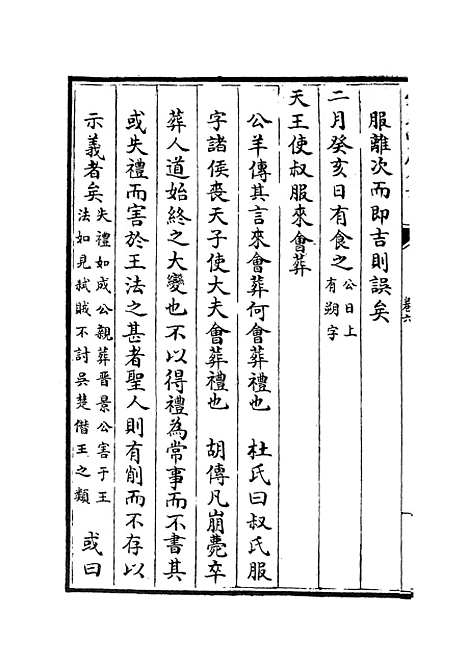 服離次而即吉則誤矣
二月癸亥日有食之公日上
有朔字
天王使叔服來會葬
公羊傳其言來會葬何會葬禮也　杜氏曰叔氏服
字諸侯喪天子使大夫會葬禮也　胡傳凡崩薨卒
葬人道始終之大變也不以得禮為常事而不書其
或失禮而害於王法之甚者聖人則有削而不存以
示義者矣失禮如成公親葬晉景公害于王
法如見弒賊不討吳楚僭王之類　或曰
卷六